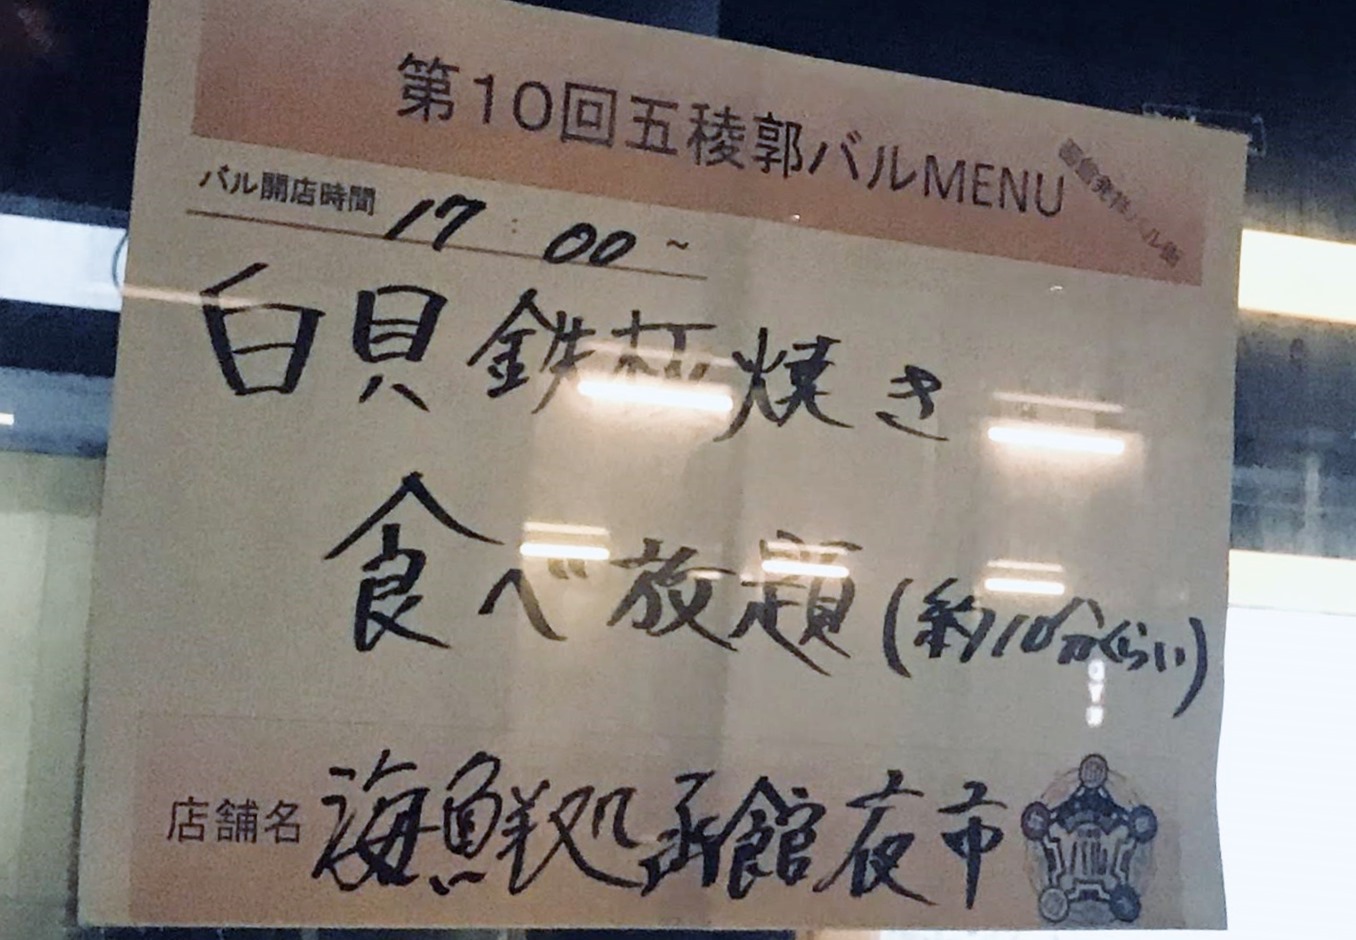 第10回五稜郭バルMENU
バル開店時間 17:00~
白貝鉄板焼き
食べ放題(約10分くらい)
店舗名 海鮮処函館夜市